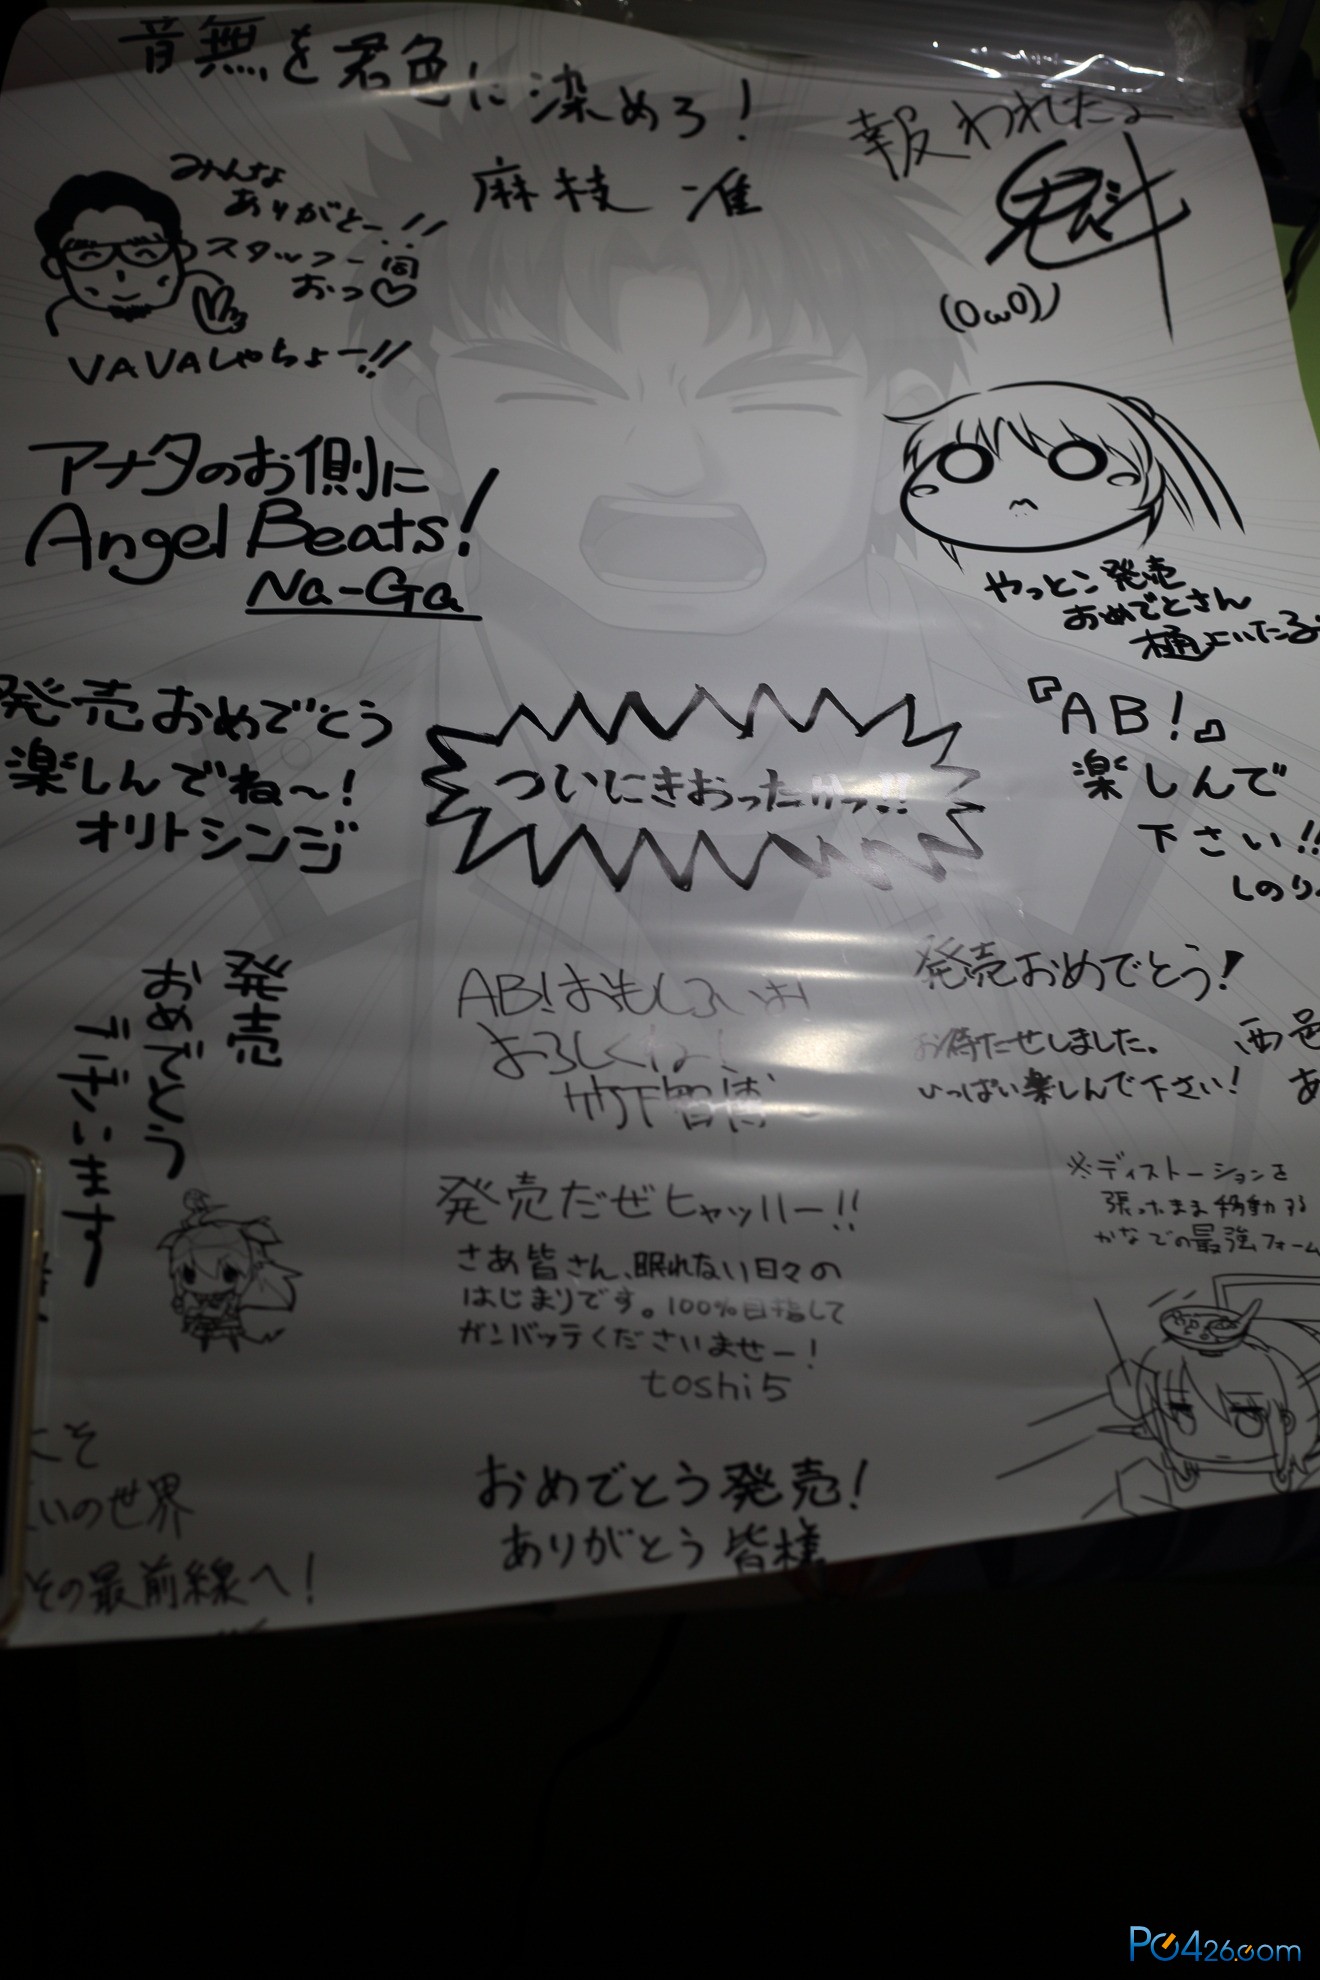 音無を君色に染めろ!
麻枝 准
報われたよ
魁
(0ω0)ノ
みんな
ありがとー!!
スタッフ一同
おっ♡
VAVAしゃちょー!!
アナタのお側に
Angel Beats!
Na-Ga
やっとこ発売
おめでとさん
樋上いたる
発売おめでとう
楽しんでね～!
オリトシンジ
ついにきおったけっ!!
『AB!』
楽しんで
下さい!!
しのり
発売
おめでとう
ございます
AB!おもしろいお!
よろしくね!
竹下智博
発売おめでとう!
お待たせしました。
いっぱい楽しんで下さい!
西邑
あ
発売だぜヒャッハー!!
さあ皆さん、眠れない日々の
はじまりです。100%目指して
ガンバッテくださいませー!
toshi5
※ディストーションを
張ったまま移動する
かなでの最強フォーム
こそ
いの世界
その最前線へ!
おめでとう発売!
ありがとう皆様
PC426.com